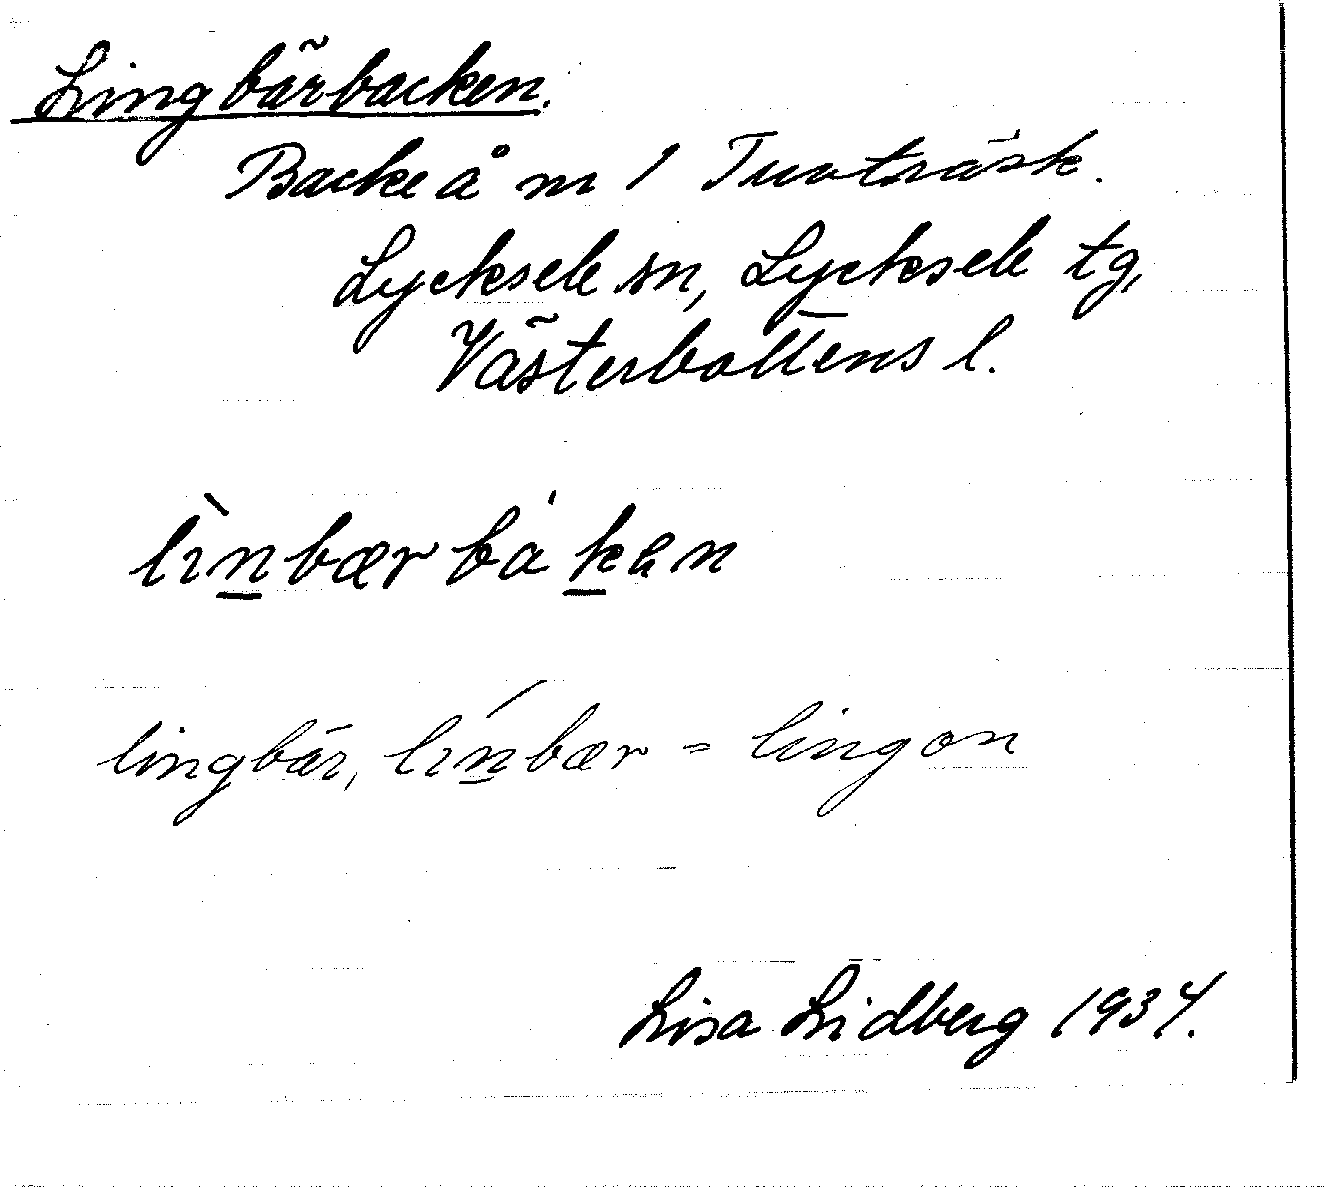 Lingbärbacken.
Backe å m 1 Tuvträsk.
Lycksele sn, Lycksele tg,
Västerbottens l.
lìn̲bærbak̲en
lingbär, lín̲bær = lingon
Lisa Lidberg 1934.